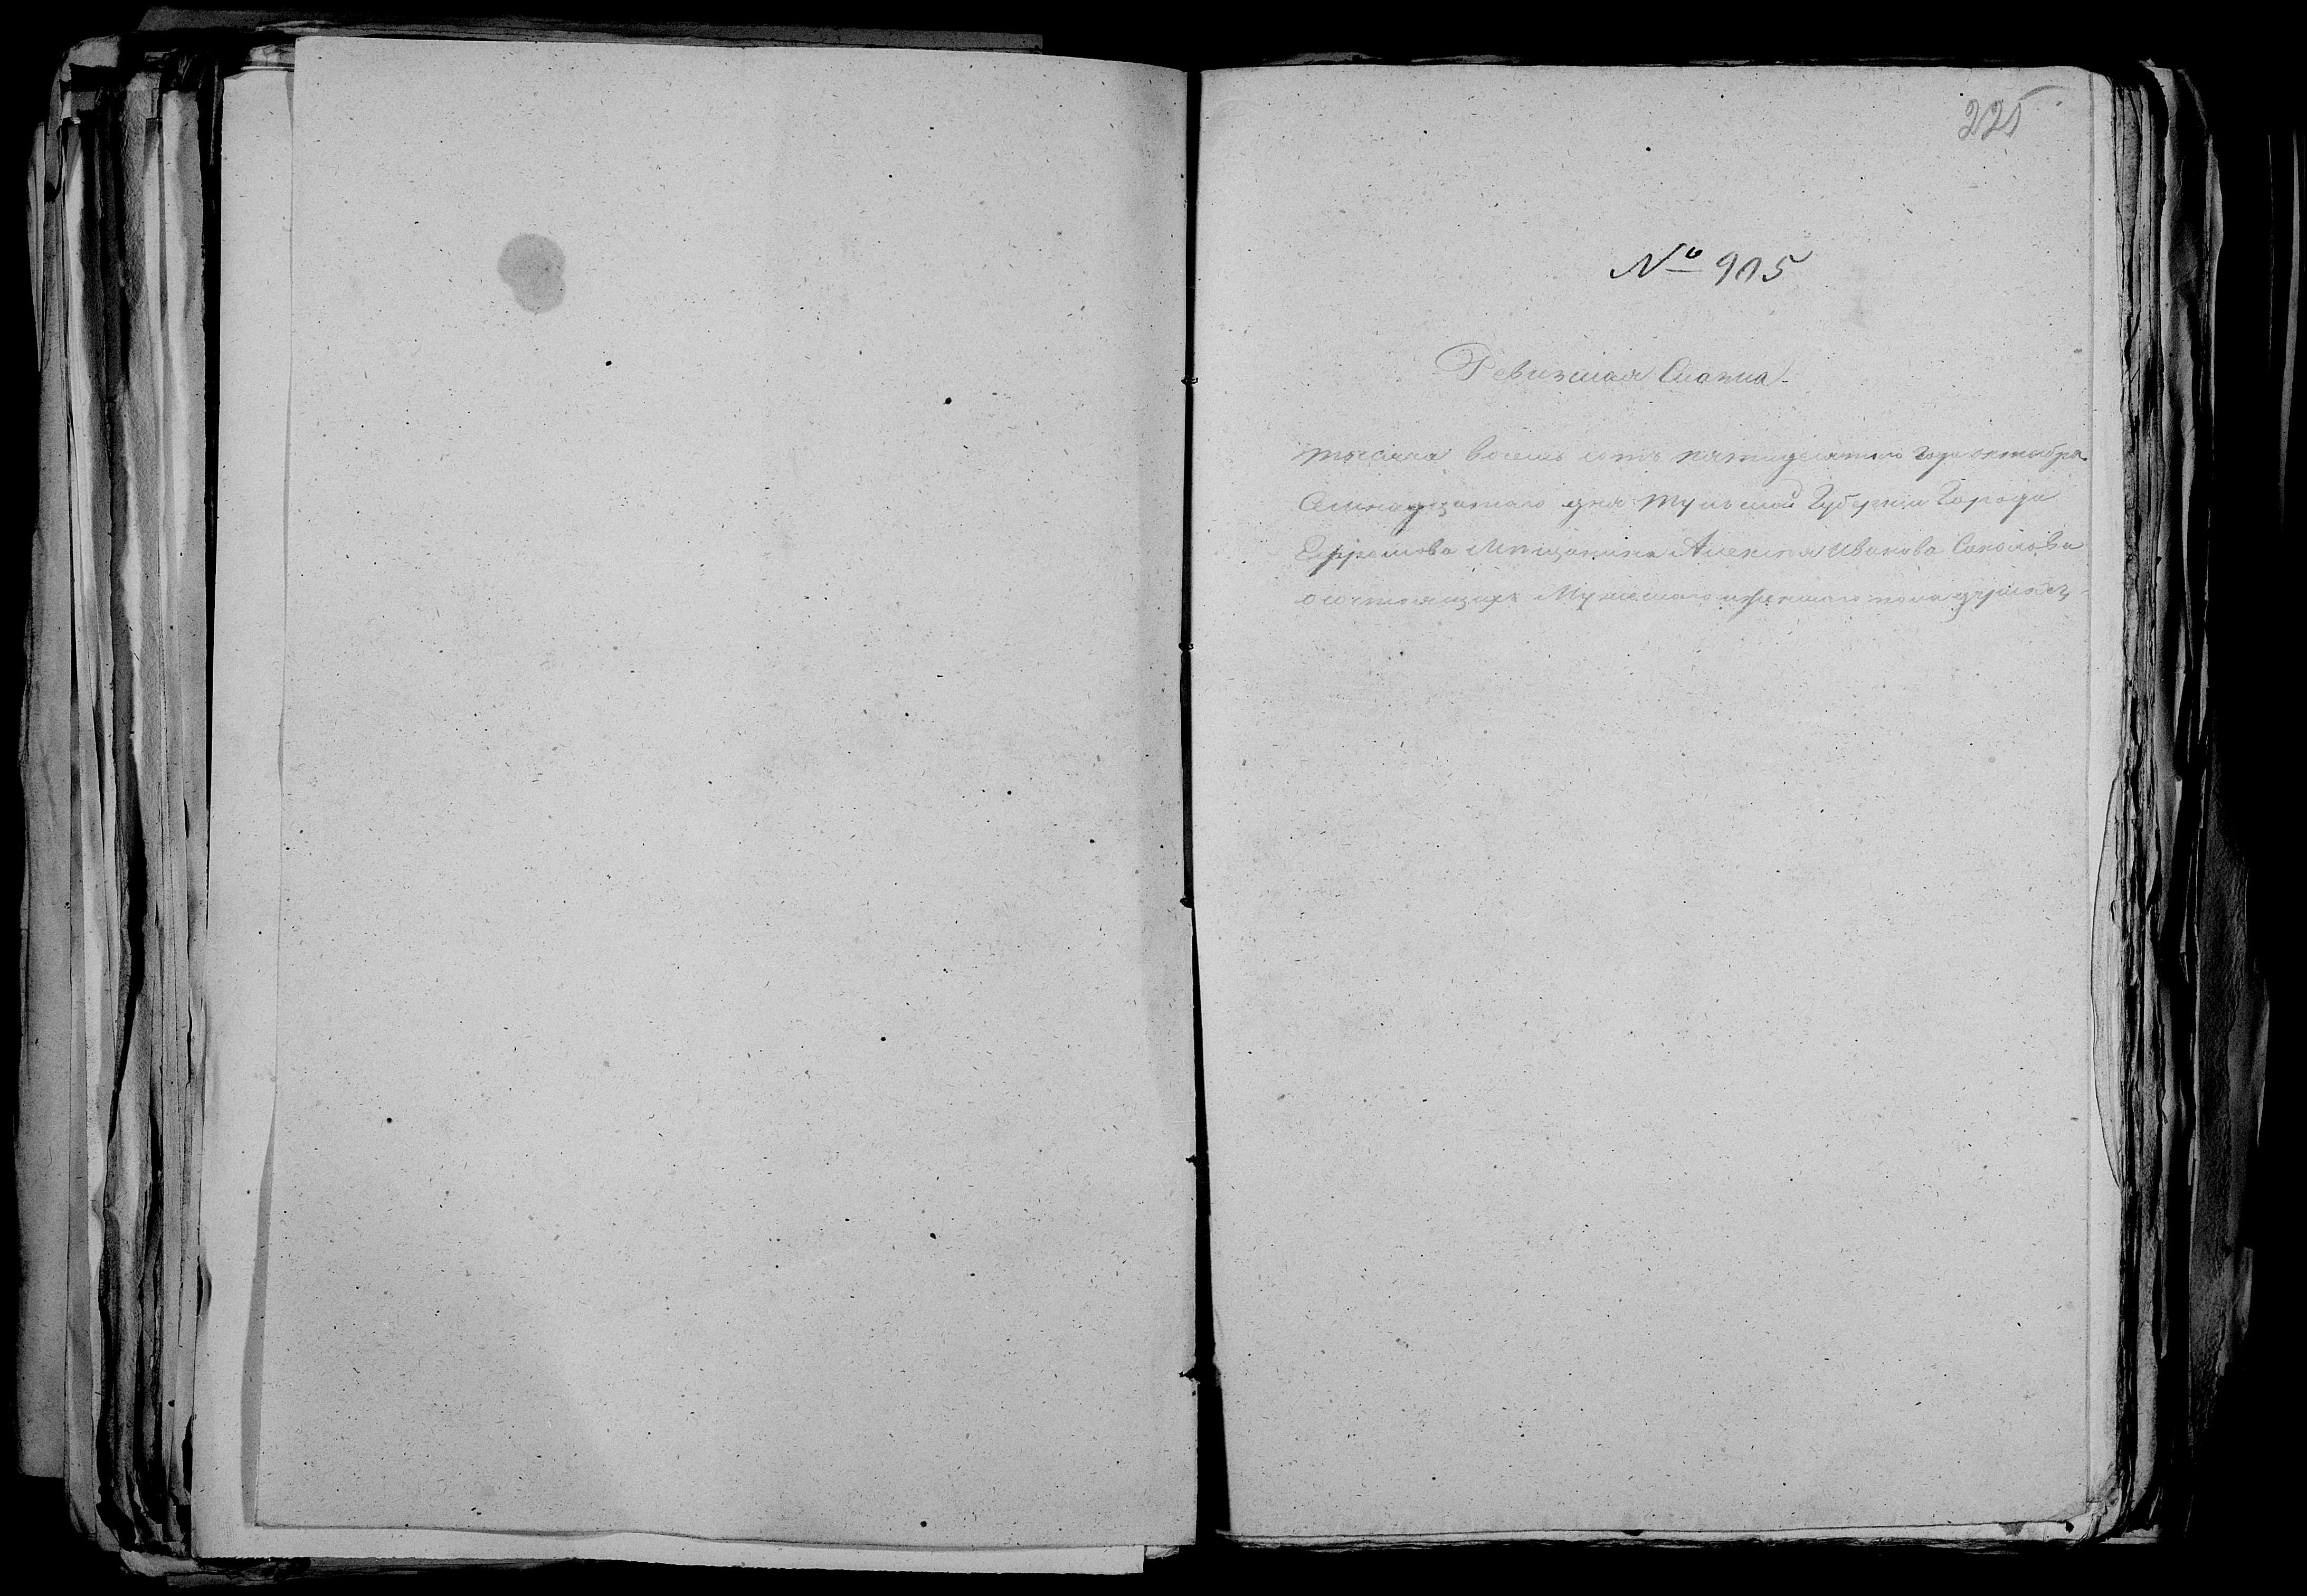 225
№ 905
Ревизская Сказка.
тысяча восемь сотъ пятидесятаго года октября
Семнадцатаго дня Тульской Губернии Города
Ефремова Мѣщанина Алексѣя Иванова Соколова
о состоящихъ Мужескаго и женскаго пола душахъ